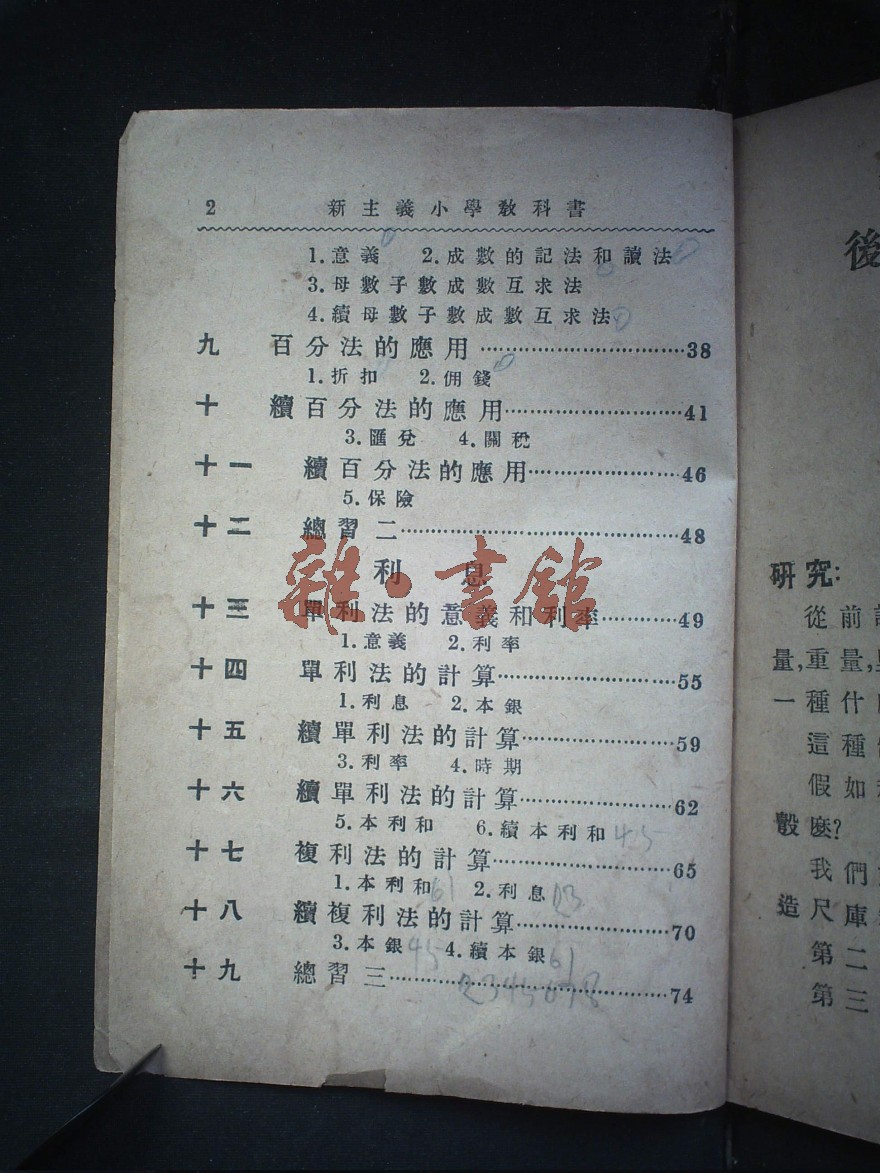 2 新主義小學教科書
1.意義 2.成數的記法和讀法
3.母數子數成數互求法
4.續母數子數成數互求法
九 百分法的應用……38
1.折扣 2.佣錢
十 續百分法的應用……41
3.匯兌 4.關稅
十一 續百分法的應用……46
5.保險
十二 總習二……48
利息
十三 單利法的意義和利率……49
1.意義 2.利率
十四 單利法的計算……55
1.利息 2.本銀
十五 續單利法的計算……59
3.利率 4.時期
十六 續單利法的計算……62
5.本利和 6.續本利和 45
十七 複利法的計算……65
1.本利和 61 2.利息 23
十八 續複利法的計算……70
3.本銀 45 4.續本銀 61
十九 總習三……74
2345678
雜·書館
後
研究:
從前
量,重量,
一種什
這種
假如
彀麼?
我們
造尺庫
第二
第三